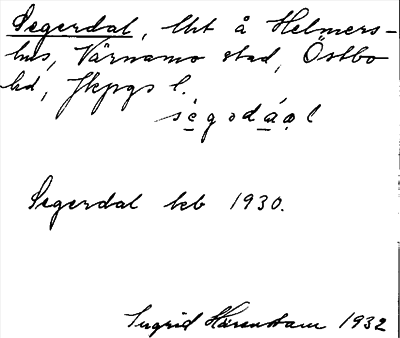 Segerdal, lht å Helmers-
hus, Värnamo stad, Östbo
hd, Jkpgs l.
ségədáəl
Segerdal kb 1930.
Ingrid Härenstam 1932